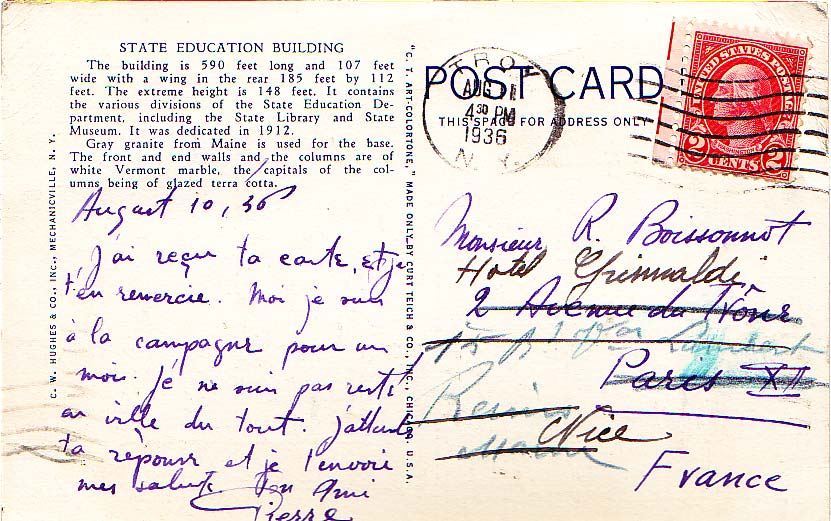 STATE EDUCATION BUILDING
The building is 590 feet long and 107 feet
wide with a wing in the rear 185 feet by 112
feet. The extreme height is 148 feet. It contains
the various divisions of the State Education De-
partment, including the State Library and State
Museum. It was dedicated in 1912.
Gray granite from Maine is used for the base.
The front and end walls and the columns are of
white Vermont marble, the capitals of the col-
umns being of glazed terra cotta.
August 10, 36
J'ai reçu ta carte, et je
t'en remercie. Moi je suis
à la campagne pour un
mois. Je ne suis pas resté
en ville du tout. J'attends
ta réponse et je t'envoie
mes saluts Ton Ami
Pierre
C. W. HUGHES & CO., INC., MECHANICVILLE, N. Y.
"C. T. ART-COLORTONE," MADE ONLY BY CURT TEICH & CO., INC., CHICAGO, U.S.A.
POST CARD
THIS SPACE FOR ADDRESS ONLY
TROY
AUG 11
4 30 PM
1936
N. Y.
UNITED STATES POSTAGE
WASHINGTON
2 CENTS 2
Monsieur R. Boissonnot
Hotel Grimaldi
2 Avenue du Trône
15 Lambert
Paris XII
Reims
Marne
Nice
France